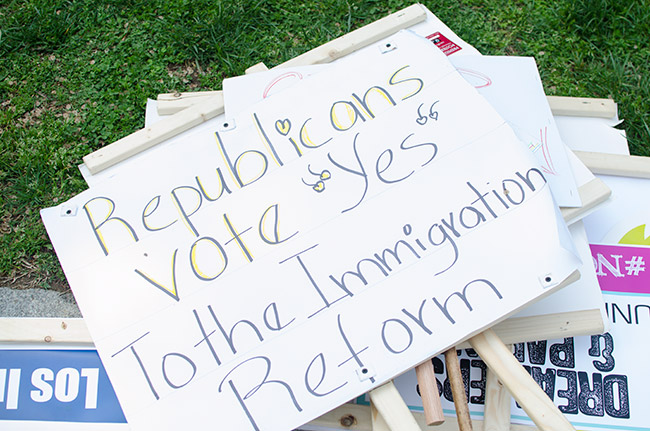 Republicans
vote "Yes"
To the Immigration
Reform
LOS I
#N
UN
DREAMERS
& PA